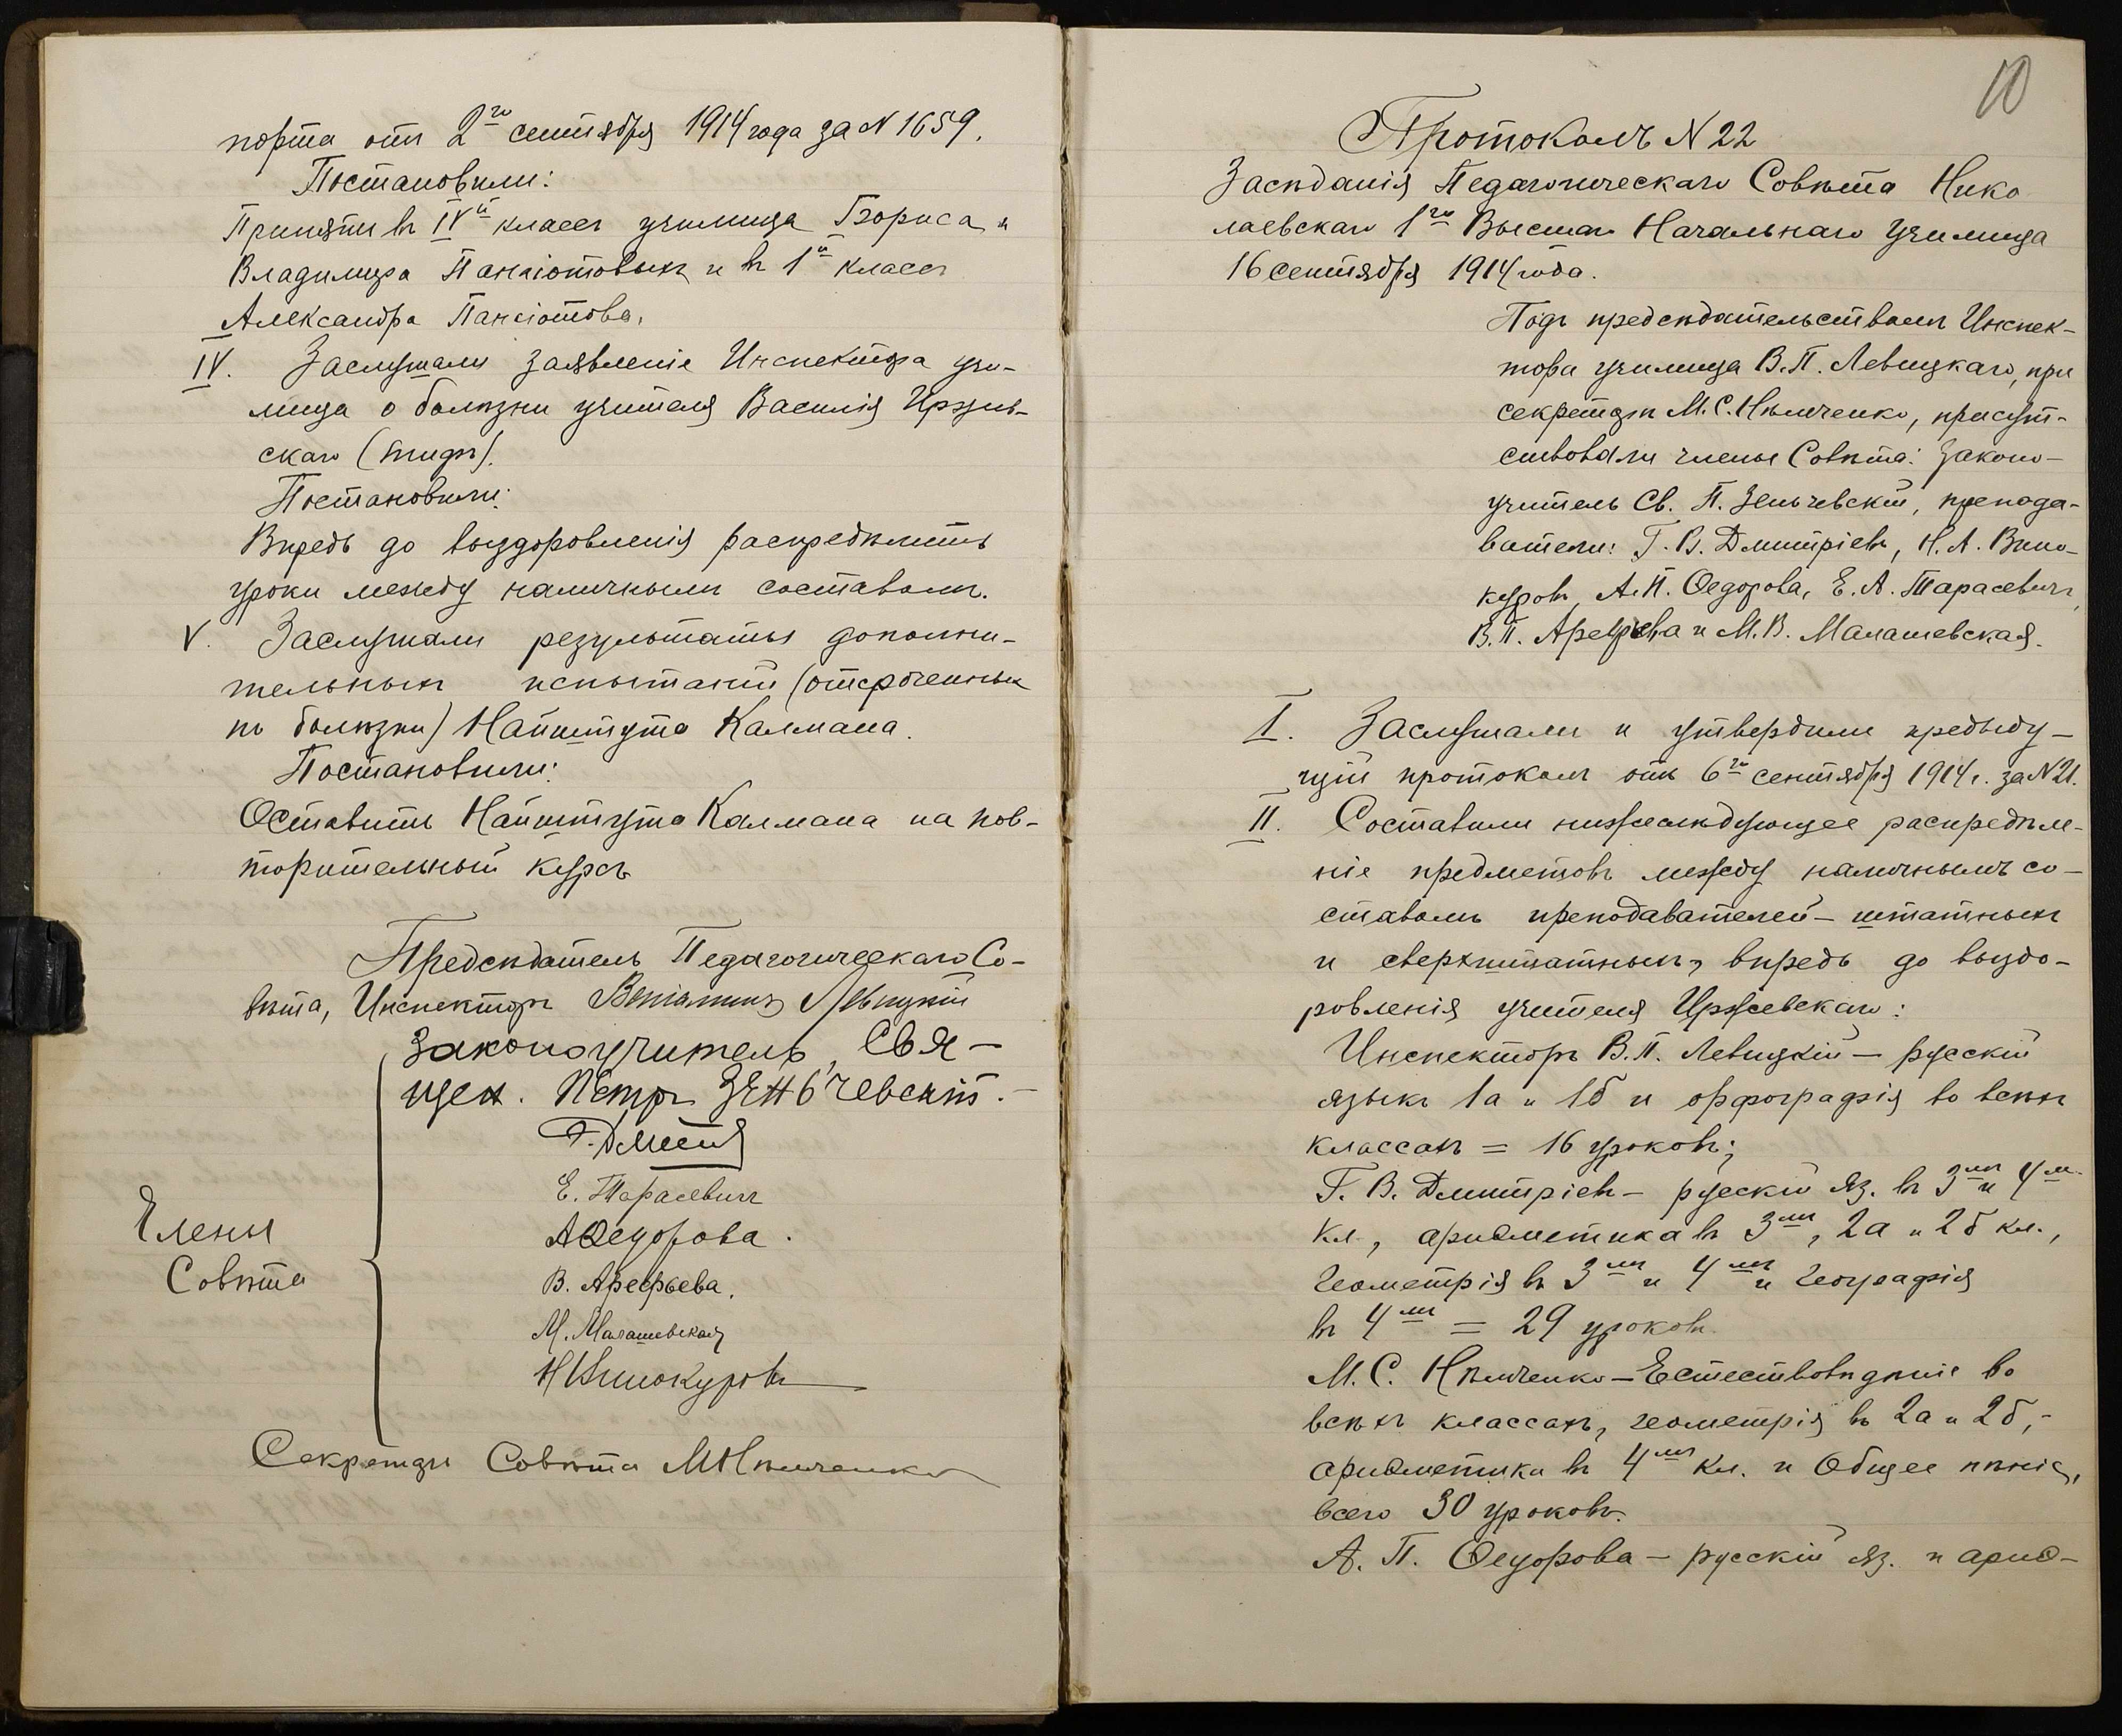 порта отъ 2го сентября 1914 года за N 1659.
Постановили:
Принять въ IVй классъ училища Бориса и
Владимира Панаіотовыхъ и въ 1й классъ
Александра Панаіотова.
IV. Заслушали заявленіе Инспектора учи-
лища о болѣзни учителя Василія Иржев-
скаго (тифъ).
Постановили:
Впредь до выздоровленія распредѣлить
уроки между наличнымъ составомъ.
V. Заслушали результаты дополни-
тельныхъ испытаній (отсроченныхъ
по болѣзни) Напштута Калмана.
Постановили:
Оставить Напштута Калмана на пов-
торительный курсъ
Предсѣдатель Педагогическаго Со-
вѣта, Инспекторъ Веніаминъ Левицкій
Законоучитель, Свя-
щен. Петръ Зеньчевскій.
Г. Дмитр
Е. Тарасевичъ
А Ѳедорова.
В. Арефьева.
М. Малашевская
Н Винокуровъ
Члены
Совѣта
Секретарь Совѣта М Нѣмченко
10
Протоколъ N 22
Засѣданія Педагогическаго Совѣта Нико
лаевскаго 1го Высшаго Начальнаго Училища
16 сентября 1914 года.
Подъ предсѣдательствомъ Инспек-
тора училища В. П. Левицкаго, при
секретарѣ М. С. Нѣмченко, присут-
ствовали члены Совѣта: Законо-
учитель Св. П. Зеньчевскій, препода-
ватели: Г. В. Дмитріевъ, Н. А. Вино-
куровъ, А. П. Ѳедорова, Е. А. Тарасевичъ,
В. П. Арефьева и М. В. Малашевская.
I. Заслушали и утвердили предыду-
щій протоколъ отъ 6го сентября 1914 г. за N 21.
II. Составили нижеслѣдующее распредѣле-
ніе предметовъ между наличнымъ со-
ставомъ преподавателей - штатныхъ
и сверхштатныхъ, впредь до выздо-
ровленія учителя Иржевскаго:
Инспекторъ В. П. Левицкій - русскій
языкъ 1а и 1б и орфографія во всѣхъ
классахъ = 16 уроковъ;
Г. В. Дмитріевъ - русскій яз. въ 3мъ и 4мъ
кл., ариѳметика въ 3мъ, 2а и 2б кл.,
геометрія въ 3мъ и 4мъ и географія
въ 4мъ = 29 уроковъ.
М. С. Нѣмченко - Естествовѣдѣніе во
всѣхъ классахъ, геометрія въ 2а и 2б, -
ариѳметика въ 4мъ кл. и Общее пѣніе,
всего 30 уроковъ.
А. П. Ѳедорова - русскій яз. и ариѳ-